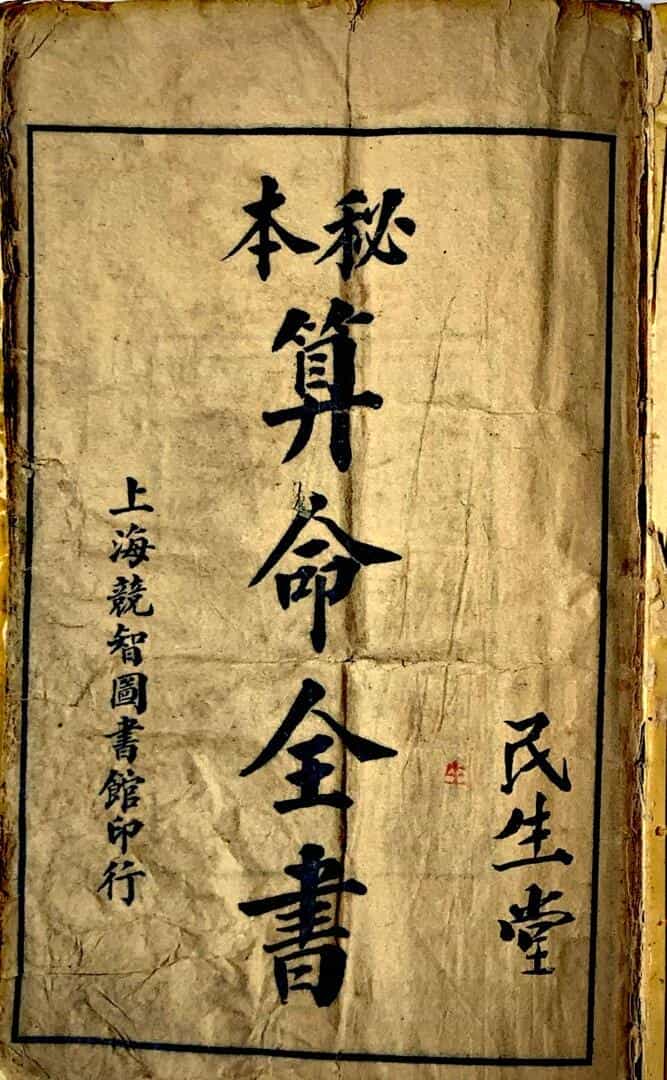 秘本
算命全書
民生堂
生
上海競智圖書館印行